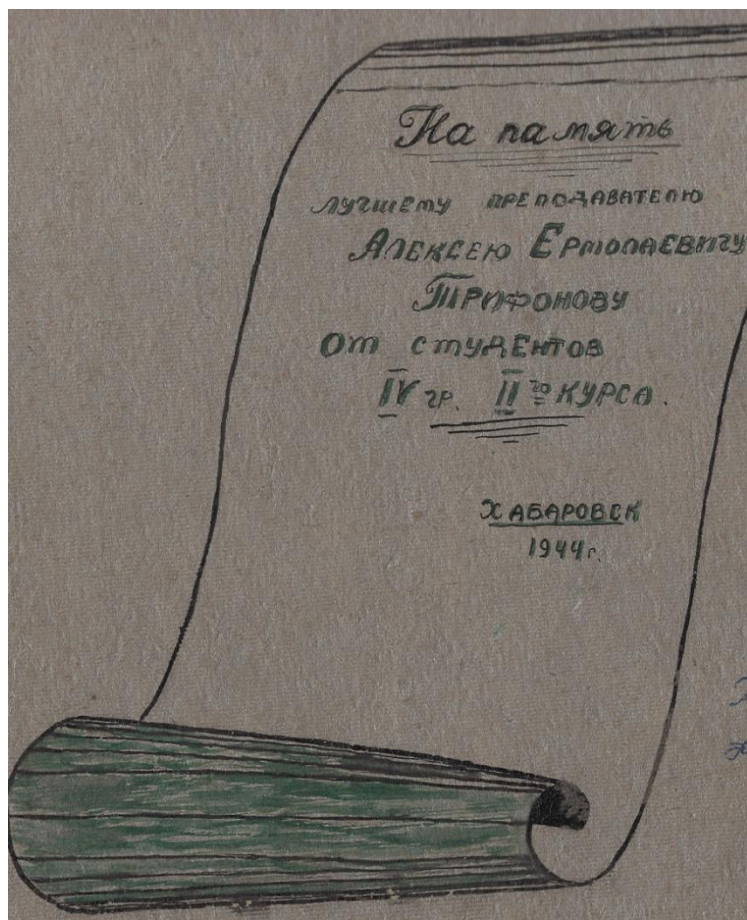 На память
лучшему преподавателю
Алексею Ермолаевичу
Трифонову
От студентов
IV гр. II го курса.
Хабаровск
1944 г.